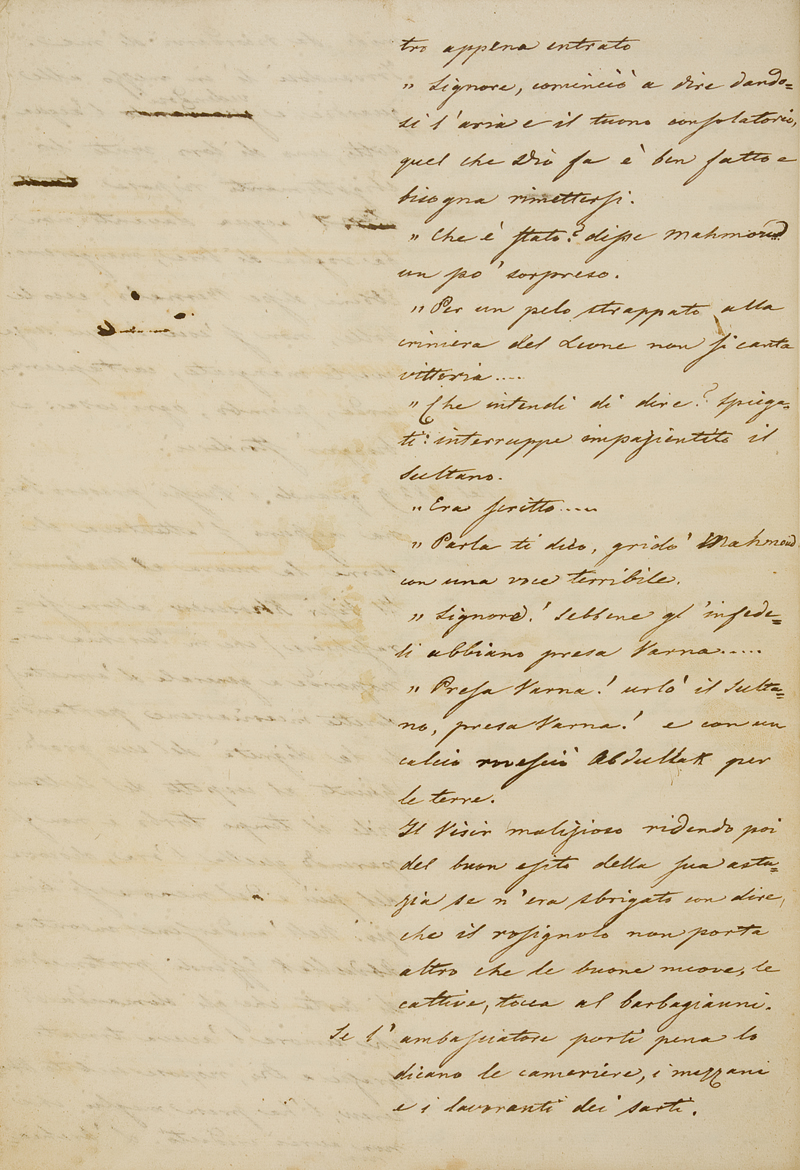 tro appena entrato
„ Signore, cominciò a dire dando=
si l'aria e il tuono consolatorio,
quel che Dio fa è ben fatto e
bisogna rimettersi.
„ Che è stato? disse Mahmoud
un po' sorpreso.
„ Per un pelo strappato alla
criniera del Leone non si canta
vittoria....
„ Che intendi di dire? spiega=
ti: interruppe impazientito il
Sultano.
„ Era scritto.....
„ Parla ti dico, gridò Mahmoud
con una voce terribile.
„ Signore! Sebbene gl'infede=
li abbiano presa Varna.....
„ Presa Varna! urlò il Sulta=
no, presa Varna! e con un
calcio rovesciò Abdullak per
le terre.
Il Visir malizioso ridendo poi
del buon esito della sua astu=
zia se n'era sbrigato con dire,
che il rosignolo non porta
altro che le buone nuove, le
cattive, tocca al barbagianni.
Se l'ambasciatore porti pena lo
dicano le cameriére, i mezzani
e i lavoranti dei sarti.